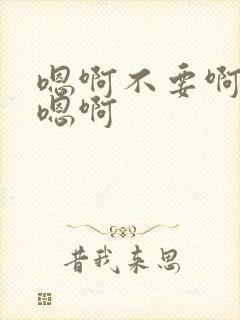 嗯啊不要啊
嗯啊
昔我来思